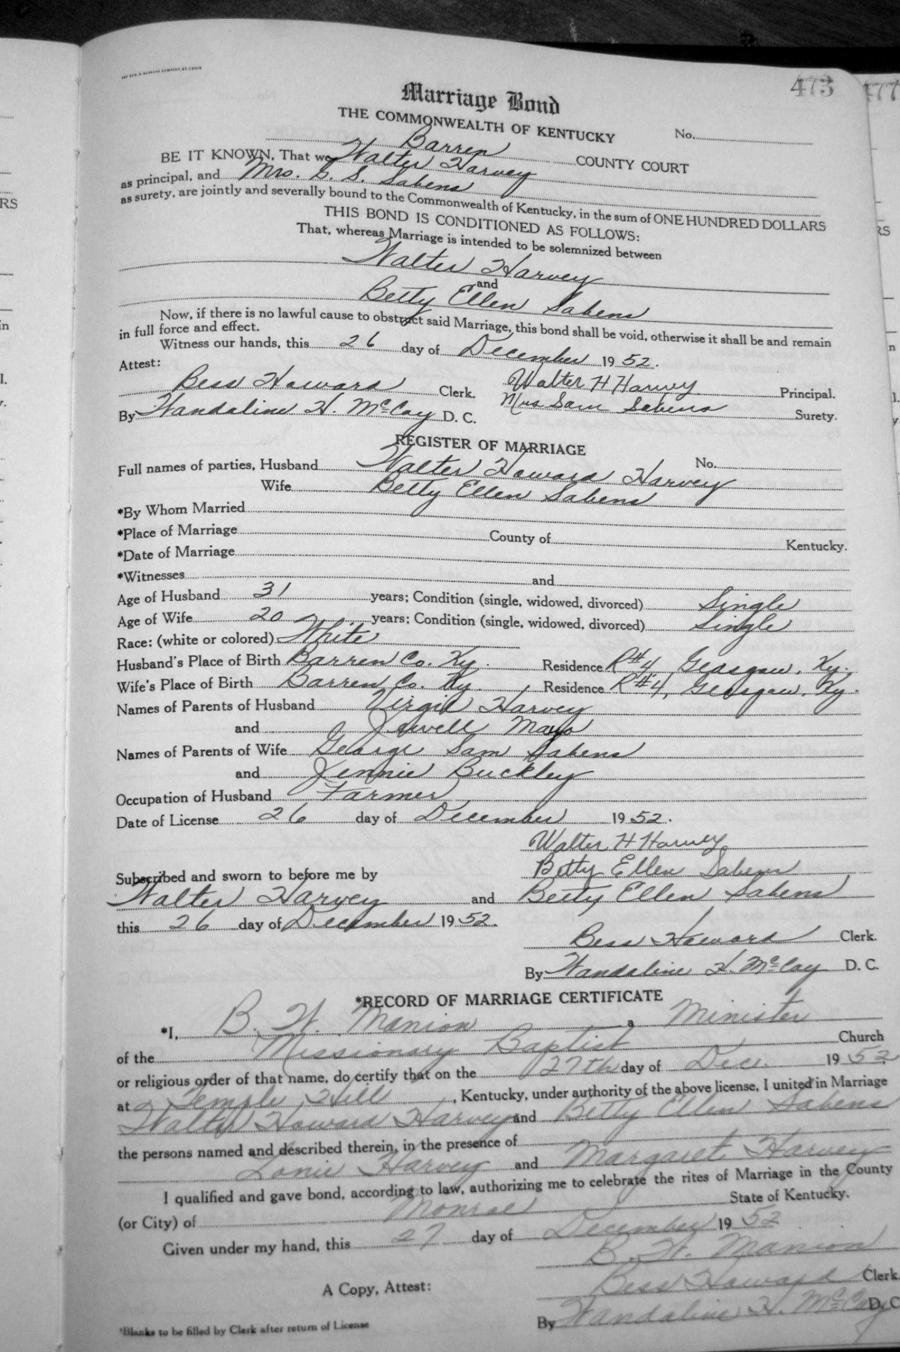 473
Marriage Bond
THE COMMONWEALTH OF KENTUCKY
No.
Barren COUNTY COURT
BE IT KNOWN, That we Walter Harvey
as principal, and Mrs. G. S. Sabens
as surety, are jointly and severally bound to the Commonwealth of Kentucky, in the sum of ONE HUNDRED DOLLARS
THIS BOND IS CONDITIONED AS FOLLOWS:
That, whereas Marriage is intended to be solemnized between
Walter Harvey
and
Betty Ellen Sabens
Now, if there is no lawful cause to obstruct said Marriage, this bond shall be void, otherwise it shall be and remain
in full force and effect.
Witness our hands, this 26 day of December 1952.
Attest:
Bess Howard Clerk. Walter H Harvey Principal.
By Wandaline H. McCoy D. C. Mrs Sam Sabens Surety.
REGISTER OF MARRIAGE
Full names of parties, Husband Walter Howard Harvey No.
Wife Betty Ellen Sabens
*By Whom Married
*Place of Marriage County of Kentucky.
*Date of Marriage
*Witnesses and
Age of Husband 31 years; Condition (single, widowed, divorced) Single
Age of Wife 20 years; Condition (single, widowed, divorced) Single
Race: (white or colored) White
Husband's Place of Birth Barren Co. Ky. Residence R#4, Glasgow, Ky.
Wife's Place of Birth Barren Co. Ky. Residence R#4, Glasgow, Ky.
Names of Parents of Husband Virgil Harvey
and Jewell Mayo
Names of Parents of Wife George Sam Sabens
and Jennie Buckley
Occupation of Husband Farmer
Date of License 26 day of December 1952.
Walter H Harvey
Betty Ellen Sabens
Subscribed and sworn to before me by
Walter Harvey and Betty Ellen Sabens
this 26 day of December 1952.
Bess Howard Clerk.
By Wandaline H. McCoy D. C.
*RECORD OF MARRIAGE CERTIFICATE
*I, B. W. Manion a Minister
of the Missionary Baptist Church
or religious order of that name, do certify that on the 27th day of Dec. 1952
at Temple Hill, Kentucky, under authority of the above license, I united in Marriage
Walter Howard Harvey and Betty Ellen Sabens
the persons named and described therein, in the presence of
Lonie Harvey and Margaret Harvey
I qualified and gave bond, according to law, authorizing me to celebrate the rites of Marriage in the County
(or City) of Monroe State of Kentucky.
Given under my hand, this 27 day of December 1952
B. W. Manion
A Copy, Attest: Bess Howard Clerk
By Wandaline H. McCoy D. C
*Blanks to be filled by Clerk after return of License